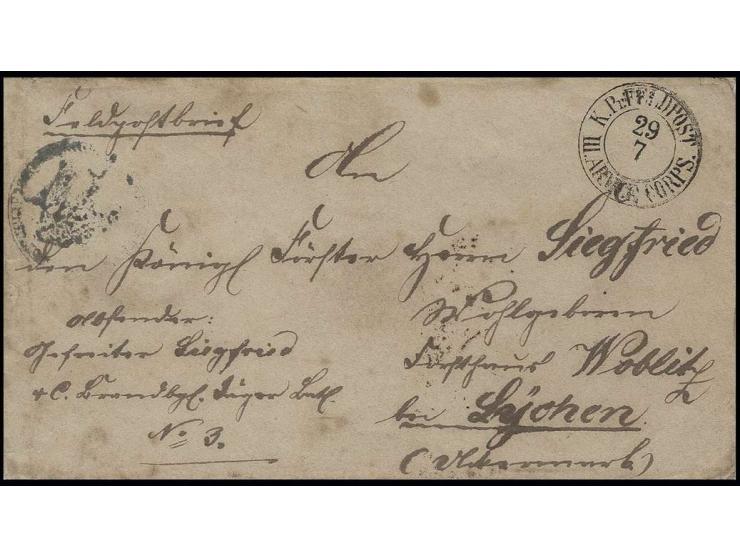 Feldpostbrief
K. PR. FELDPOST
29
7
III. ARMEE CORPS.
An
den Königl Förster Herrn Siegfried
Wohlgeboren
Forsthaus Woblitz
bei Lÿchen
(Uckermark)
Absender:
Gefreiter Siegfried
C. Brandbg. Jäger Batl.
No 3.